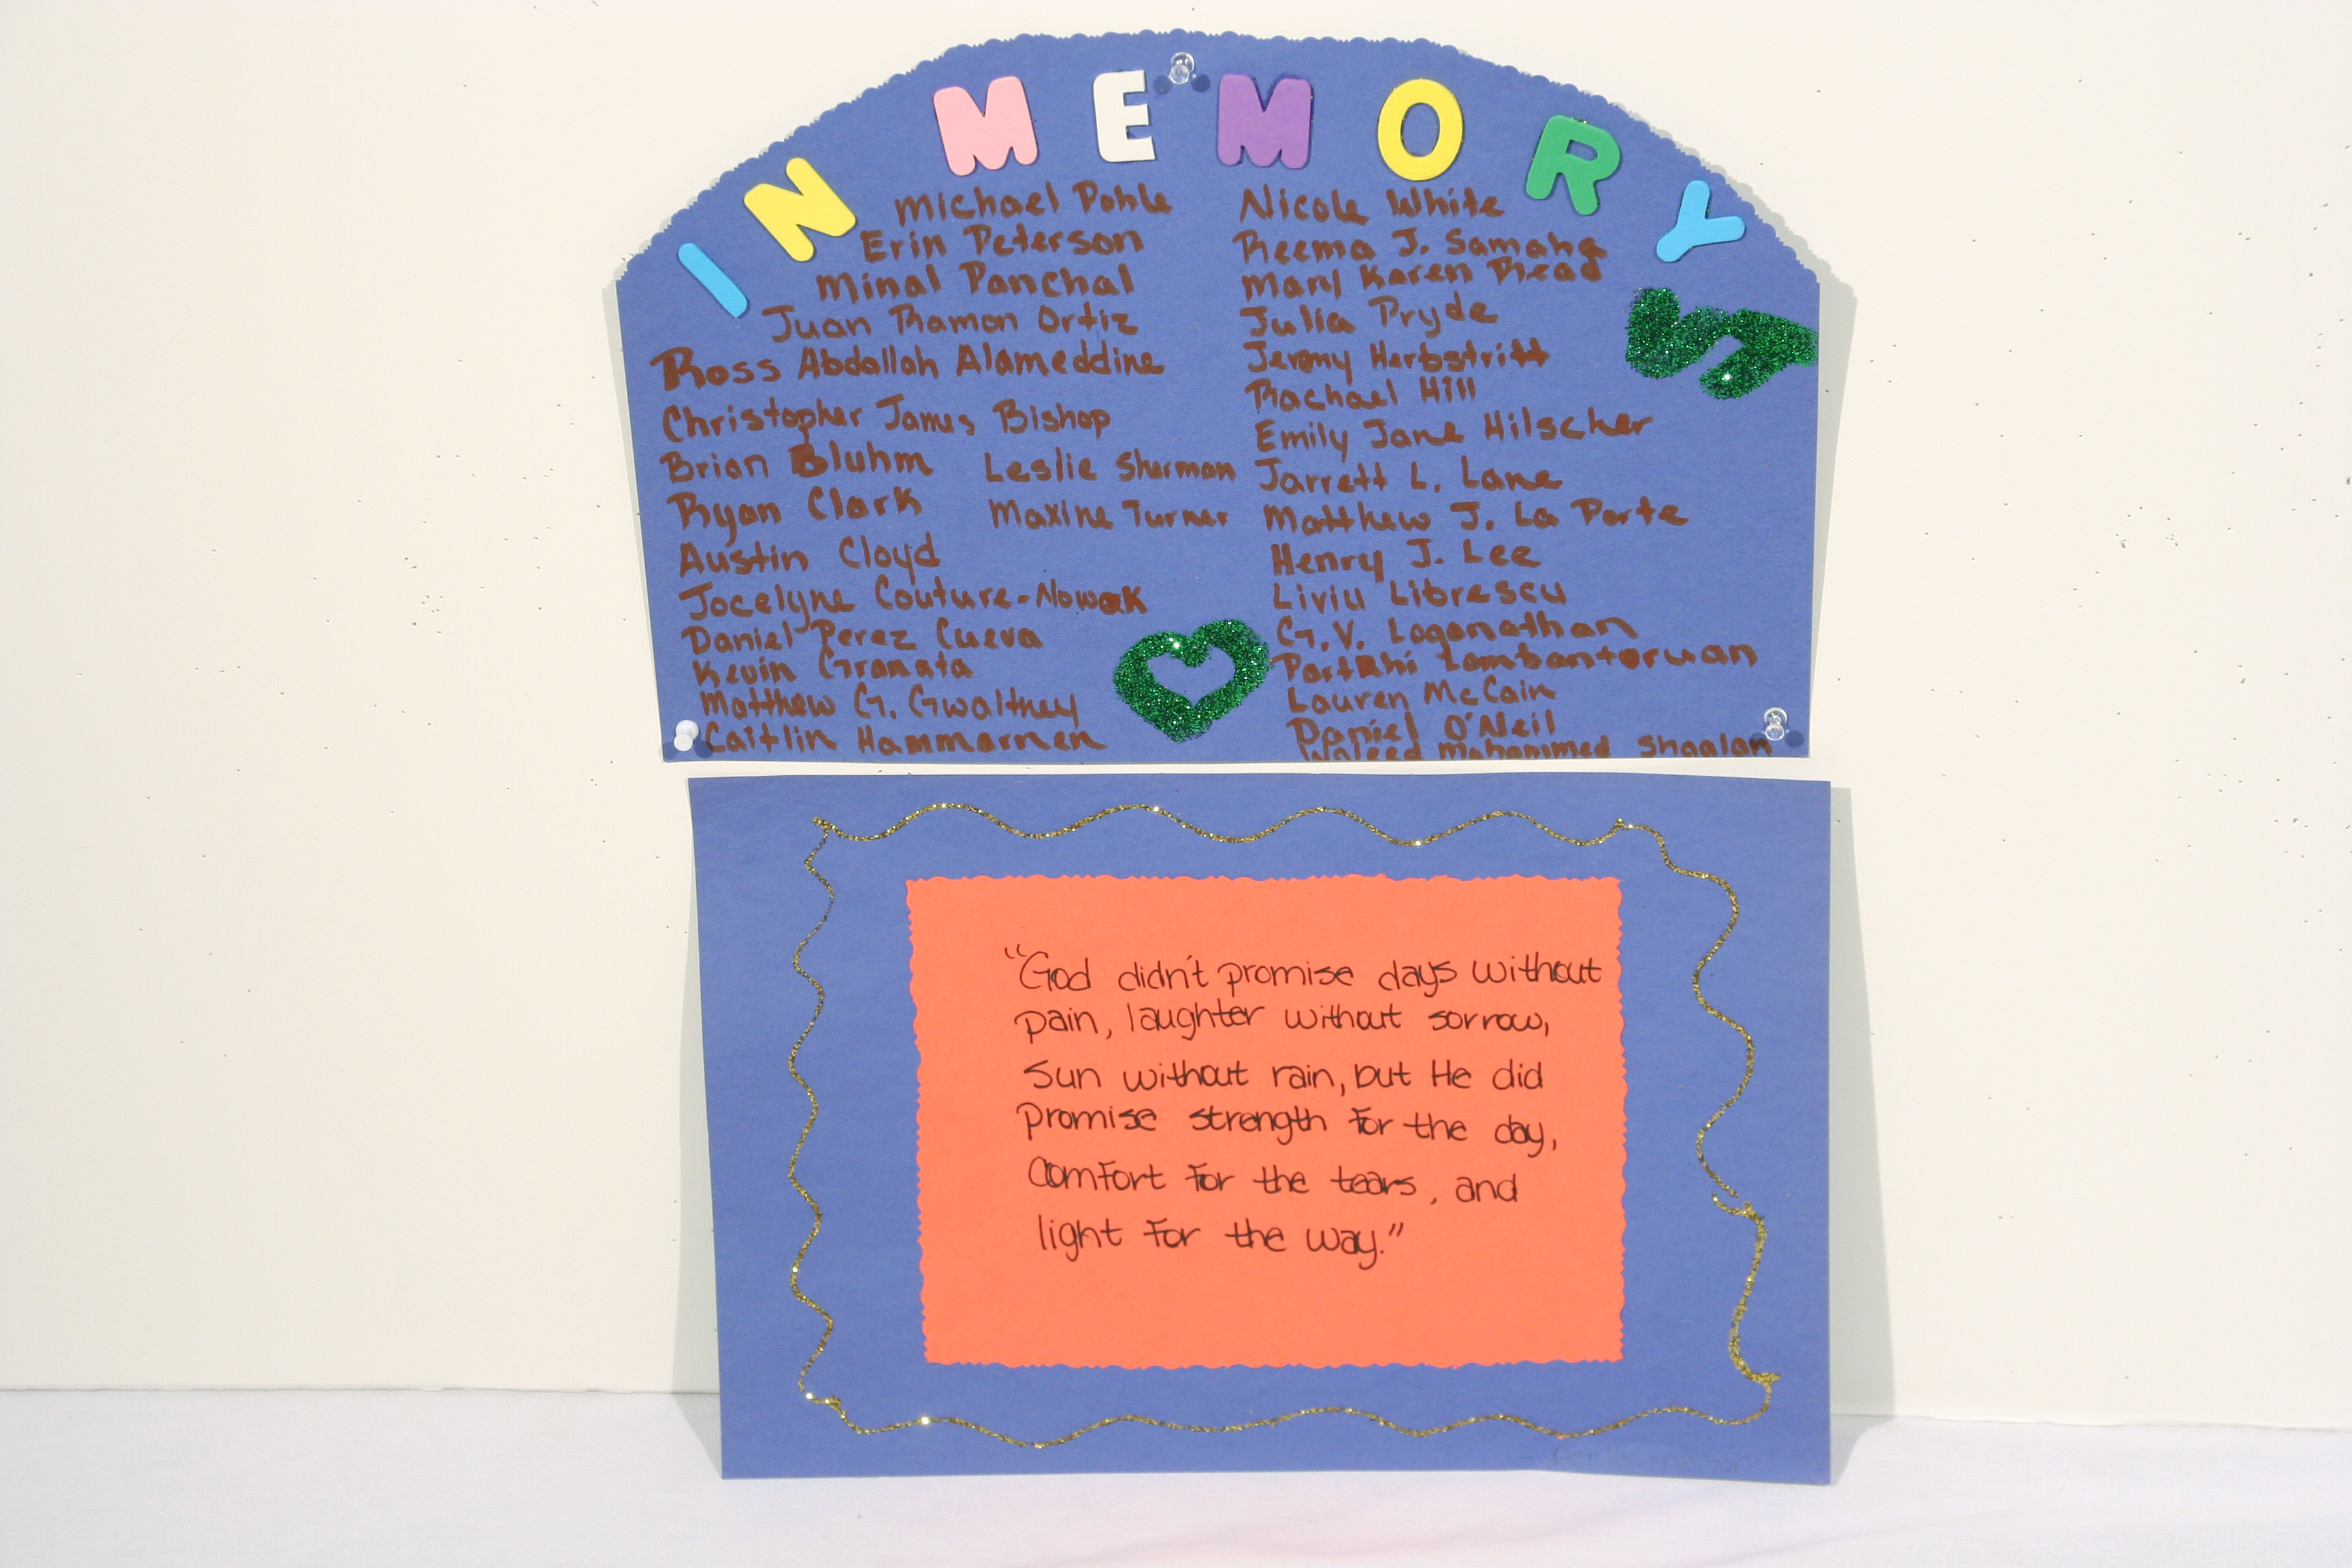 IN MEMORY
Michael Pohle
Erin Peterson
Minal Panchal
Juan Ramon Ortiz
Ross Abdallah Alameddine
Christopher James Bishop
Brian Bluhm
Leslie Sherman
Ryan Clark
Maxine Turner
Austin Cloyd
Jocelyne Couture-Nowak
Daniel Perez Cueva
Kevin Granata
Matthew G. Gwaltney
Caitlin Hammarnen
Nicole White
Reema J. Samaha
Mary Karen Read
Julia Pryde
Jeremy Herbstritt
Rachael Hill
Emily Jane Hilscher
Jarrett L. Lane
Matthew J. La Porte
Henry J. Lee
Liviu Librescu
G.V. Loganathan
Partahi Lombantoruan
Lauren McCain
Daniel O'Neil
Waleed Mohammed Shaalan
"God didn't promise days without
pain, laughter without sorrow,
Sun without rain, but He did
promise strength for the day,
Comfort for the tears, and
light for the way."